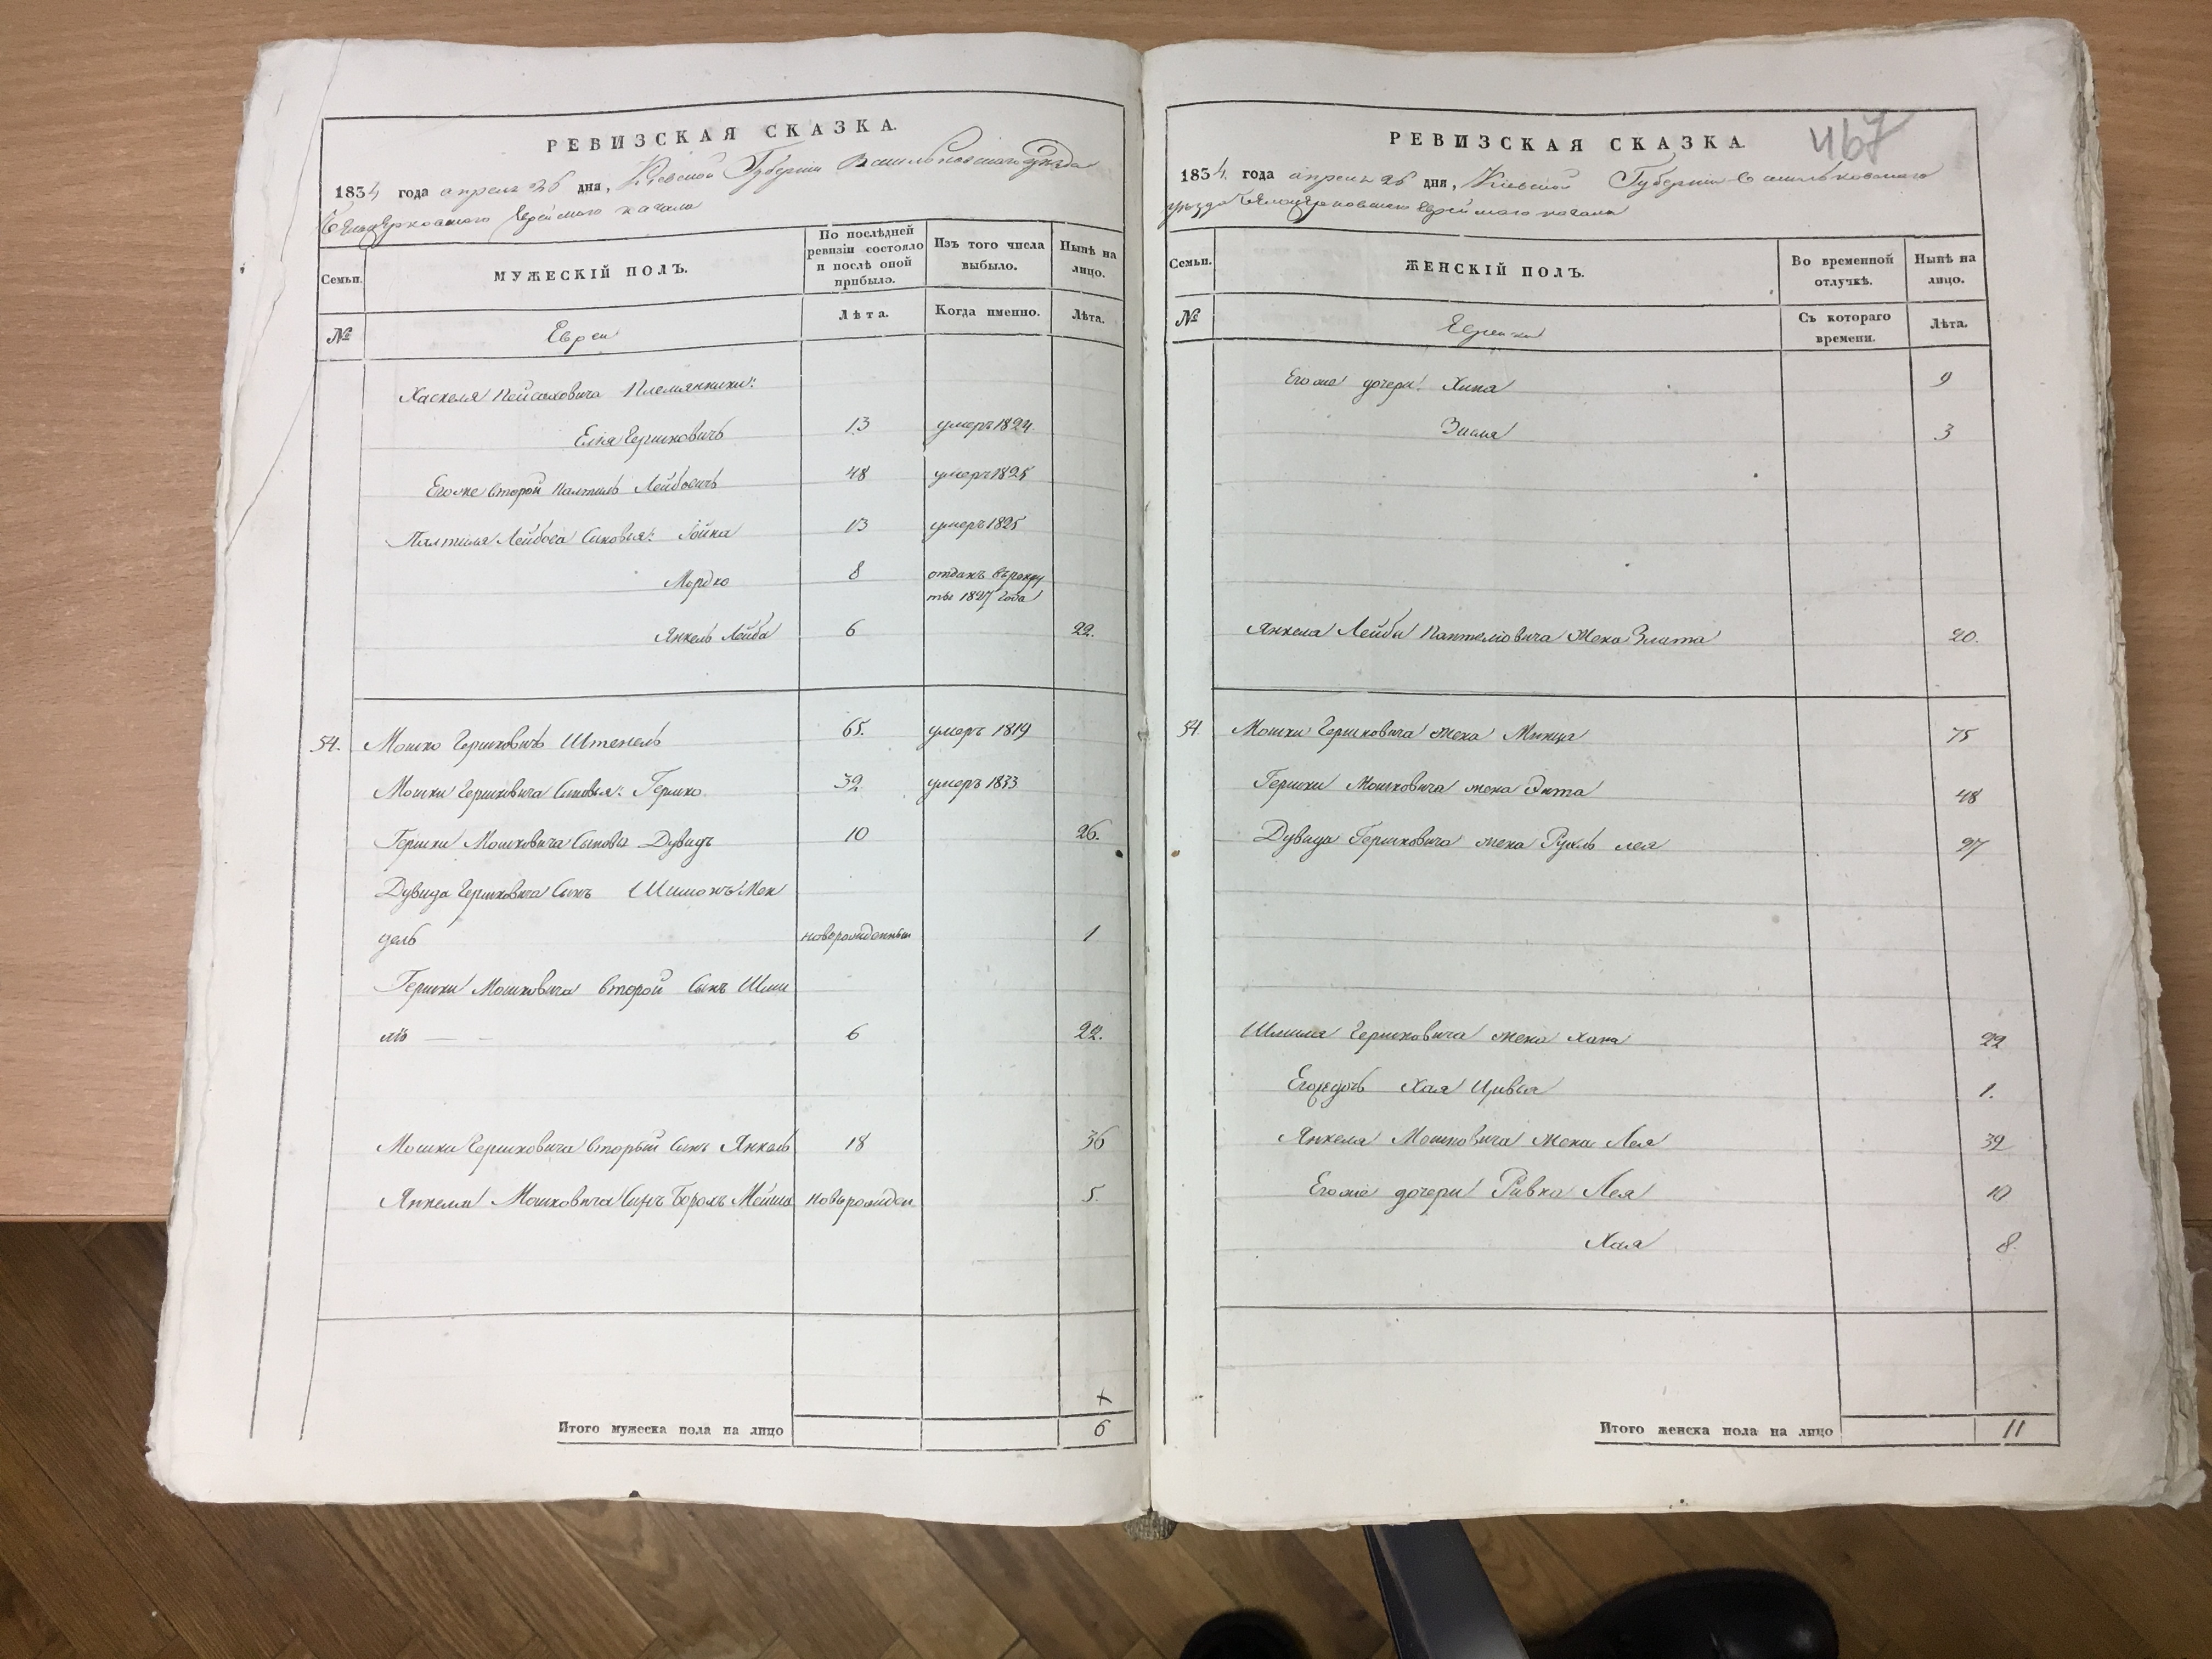 РЕВИЗСКАЯ СКАЗКА.
1834 года апреля 26 дня, Кіевской Губерніи Васильковскаго уезда
Белоцерковскаго Еврейскаго кагала
Семьи.
МУЖЕСКІЙ ПОЛЪ.
По послѣдней ревизіи состояло и послѣ оной прибыло.
Изъ того числа выбыло.
Нынѣ на лицо.
№
Евреи
Лѣта.
Когда именно.
Лѣта.
Хаскеля Пейсаховича Племянники:
Еліа Гершковичъ 13 умеръ 1824
Егоже второй Палтиль Лейбовичъ 48 умеръ 1825
Палтиля Лейбова Сыновья: Іойна 13 умеръ 1825
Мордко 8 отданъ въ рекру
ты 1827 года
Янкель Лейба 6 22.
54. Мошко Гершковичъ Штепель 65. умеръ 1819
Мошки Гершковича Сыновья: Гершко 32 умеръ 1833
Гершки Мошковича Сыновья Дувидъ 10 26.
Дувида Гершковича Сынъ Шимонъ Мен
дель новорожденный 1
Гершки Мошковича второй Сынъ Шми
ль — - 6 22.
Мошки Гершковича вторый Сынъ Янкель 18 36
Янкеля Мошковича Сынъ Борохъ новорожден 5.
+
Итого мужеска пола на лицо 6
467
РЕВИЗСКАЯ СКАЗКА.
1834. года апреля 26 дня, Кіевской Губерніи Васильковскаго
уезда Белоцерковскаго Еврейскаго кагала
Семьи.
ЖЕНСКІЙ ПОЛЪ.
Во временной отлучкѣ.
Нынѣ на лицо.
№
Еврейки
Съ котораго времени.
Лѣта.
Егоже дочери: Хина 9
Зисля 3
Янкела Лейби Палтеліовича жена Злата 20.
54. Мошки Гершковича жена Минца 75
Гершки Мошковича жена Энта 48
Дувида Гершковича жена Рухль лея 27
Шмиля Гершковича жена Хана 22
Егоже дочь Хая Цивья 1.
Янкела Мошковича жена Лея 32
Егоже дочери Ривка Лея 10
Хая 8.
Итого женска пола на лицо 11